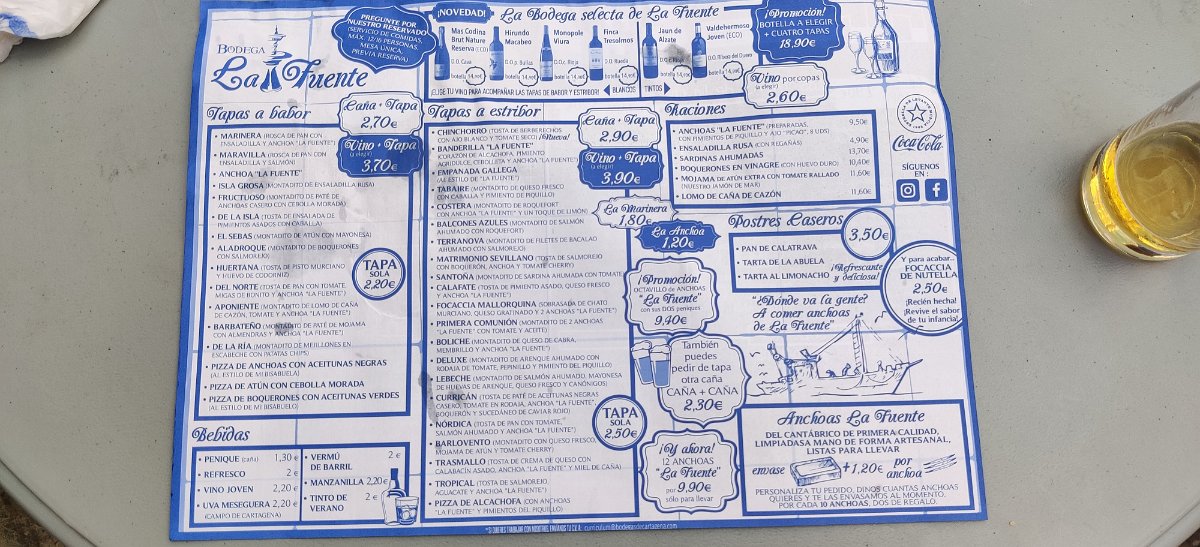 BODEGA
La Fuente
PREGUNTE POR
NUESTRO RESERVADO
(SERVICIO DE COMIDAS,
MÁX. 12/16 PERSONAS,
MESA ÚNICA,
PREVIA RESERVA)
¡NOVEDAD!
La Bodega selecta de La Fuente
Mas Codina
Brut Nature
Reserva (ECO)
D.O. Cava
botella 14,90€
Hirundo
Macabeo
D.O.p. Bullas
botella 14,90€
Monopole
Viura
D.O.c. Rioja
botella 14,90€
Finca
Tresolmos
D.O. Rueda
botella 14,90€
Jaun de
Alzate
D.O.c. Rioja
botella 14,90€
Valdehermoso
Joven (ECO)
D.O. Ribera del Duero
botella 14,90€
¡ELIGE TU VINO PARA ACOMPAÑAR LAS TAPAS DE BABOR Y ESTRIBOR!
BLANCOS
TINTOS
¡Promoción!
BOTELLA A ELEGIR
+ CUATRO TAPAS
18,90€
Vino por copas
(a elegir)
2,60€
Tapas a babor
Caña + Tapa
2,70€
Vino + Tapa
(a elegir)
3,70€
• MARINERA (ROSCA DE PAN CON
ENSALADILLA Y ANCHOA "LA FUENTE")
• MARAVILLA (ROSCA DE PAN CON
ENSALADILLA Y SALMÓN)
• ANCHOA "LA FUENTE"
• ISLA GROSA (MONTADITO DE ENSALADILLA RUSA)
• FRUCTUOSO (MONTADITO DE PATÉ DE
ANCHOAS CASERO CON CEBOLLA MORADA)
• DE LA ISLA (TOSTA DE ENSALADA DE
PIMIENTOS ASADOS CON CABALLA)
• EL SEBAS (MONTADITO DE ATÚN CON MAYONESA)
• ALADROQUE (MONTADITO DE BOQUERONES
CON SALMOREJO)
• HUERTANA (TOSTA DE PISTO MURCIANO
Y HUEVO DE CODORNIZ)
• DEL NORTE (TOSTA DE PAN CON TOMATE,
MIGAS DE BONITO Y ANCHOA "LA FUENTE")
• APONIENTE (MONTADITO DE LOMO DE CAÑA
DE CAZÓN, TOMATE Y ANCHOA "LA FUENTE")
• BARBATEÑO (MONTADITO DE PATÉ DE MOJAMA
CON ALMENDRAS Y ANCHOA "LA FUENTE")
• DE LA RÍA (MONTADITO DE MEJILLONES EN
ESCABECHE CON PATATAS CHIPS)
• PIZZA DE ANCHOAS CON ACEITUNAS NEGRAS
(AL ESTILO DE MI BISABUELA)
• PIZZA DE ATÚN CON CEBOLLA MORADA
• PIZZA DE BOQUERONES CON ACEITUNAS VERDES
(AL ESTILO DE MI BISABUELO)
TAPA
SOLA
2,20€
Bebidas
• PENIQUE (caña) 1,30 €
• REFRESCO 2 €
• VINO JOVEN 2,20 €
• UVA MESEGUERA 2,20 €
(CAMPO DE CARTAGENA)
• VERMÚ 2 €
DE BARRIL
• MANZANILLA 2,20€
• TINTO DE 2 €
VERANO
Tapas a estribor
Caña + Tapa
2,90€
Vino + Tapa
(a elegir)
3,90€
• CHINCHORRO (TOSTA DE BERBERECHOS
CON AJO BLANCO Y TOMATE SECO) ¡Nueva!
• BANDERILLA "LA FUENTE"
(CORAZÓN DE ALCACHOFA, PIMIENTO
AGRIDULCE, CEBOLLETA Y ANCHOA "LA FUENTE")
• EMPANADA GALLEGA
(AL ESTILO DE "LA FUENTE")
• TABAIRE (MONTADITO DE QUESO FRESCO
CON CABALLA Y PIMIENTO DE PIQUILLO)
• COSTERA (MONTADITO DE ROQUEFORT
CON ANCHOA "LA FUENTE" Y UN TOQUE DE LIMÓN)
• BALCONES AZULES (MONTADITO DE SALMÓN
AHUMADO CON ROQUEFORT)
• TERRANOVA (MONTADITO DE FILETES DE BACALAO
AHUMADO CON SALMOREJO)
• MATRIMONIO SEVILLANO (TOSTA DE SALMOREJO
CON BOQUERÓN, ANCHOA Y TOMATE CHERRY)
• SANTOÑA (MONTADITO DE SARDINA AHUMADA CON TOMATE)
• CALAFATE (TOSTA DE PIMIENTO ASADO, QUESO FRESCO
Y ANCHOA "LA FUENTE")
• FOCACCIA MALLORQUINA (SOBRASADA DE CHATO
MURCIANO, QUESO GRATINADO Y 2 ANCHOAS "LA FUENTE")
• PRIMERA COMUNIÓN (MONTADITO DE 2 ANCHOAS
"LA FUENTE" CON TOMATE Y ACEITE)
• BOLICHE (MONTADITO DE QUESO DE CABRA,
MEMBRILLO Y ANCHOA "LA FUENTE")
• DELUXE (MONTADITO DE ARENQUE AHUMADO CON
RODAJA DE TOMATE, PEPINILLO Y PIMIENTO DEL PIQUILLO)
• LEBECHE (MONTADITO DE SALMÓN AHUMADO, MAYONESA
DE HUEVAS DE ARENQUE, QUESO FRESCO Y CANÓNIGOS)
• CURRICÁN (TOSTA DE PATÉ DE ACEITUNAS NEGRAS
CASERO, TOMATE EN RODAJA, ANCHOA "LA FUENTE",
BOQUERÓN Y SUCEDÁNEO DE CAVIAR ROJO)
• NÓRDICA (TOSTA DE PAN CON TOMATE,
SALMÓN AHUMADO Y ANCHOA "LA FUENTE")
• BARLOVENTO (MONTADITO CON QUESO FRESCO,
MOJAMA DE ATÚN Y TOMATE CHERRY)
• TRASMALLO (TOSTA DE CREMA DE QUESO CON
CALABACÍN ASADO, ANCHOA "LA FUENTE" Y MIEL DE CAÑA)
• TROPICAL (TOSTA DE SALMOREJO
AGUACATE Y ANCHOA "LA FUENTE")
• PIZZA DE ALCACHOFA (CON ANCHOAS
"LA FUENTE" Y PIMIENTOS DEL PIQUILLO)
TAPA
SOLA
2,50€
La Marinera
1,80€
La Anchoa
1,20€
¡Promoción!
OCTAVILLO de ANCHOAS
"La Fuente"
con sus DOS peniques
9,40€
También
puedes
pedir de tapa
otra caña
CAÑA + CAÑA
2,30€
¡Y ahora!
12 ANCHOAS
"La Fuente"
por 9,90€
sólo para llevar
Raciones
• ANCHOAS "LA FUENTE" (PREPARADAS, 9,50€
CON PIMIENTOS DE PIQUILLO Y AJO "PICAO", 8 UDS)
• ENSALADILLA RUSA (CON REGAÑÁS) 4,90€
• SARDINAS AHUMADAS 13,70€
• BOQUERONES EN VINAGRE (CON HUEVO DURO) 10,40€
• MOJAMA DE ATÚN EXTRA CON TOMATE RALLADO 11,60€
(NUESTRO JAMÓN DE MAR)
• LOMO DE CAÑA DE CAZÓN 11,60€
Coca-Cola
SÍGUENOS
EN :
Postres Caseros
3,50€
• PAN DE CALATRAVA
• TARTA DE LA ABUELA
• TARTA AL LIMONACHO
¡Refrescante
y deliciosa!
Y para acabar...
FOCACCIA
DE NUTELLA
2,50€
¡Recién hecha!
¡Revive el sabor
de tu infancia!
"¿Dónde va la gente?
A comer anchoas
de La Fuente"
Anchoas La Fuente
DEL CANTÁBRICO DE PRIMERA CALIDAD,
LIMPIADAS A MANO DE FORMA ARTESANAL,
LISTAS PARA LLEVAR
envase +1,20€ por anchoa
PERSONALIZA TU PEDIDO, DINOS CUANTAS ANCHOAS
QUIERES Y TE LAS ENVASAMOS AL MOMENTO.
POR CADA 10 ANCHOAS, DOS DE REGALO.
curriculum@bodegasdecartagena.com